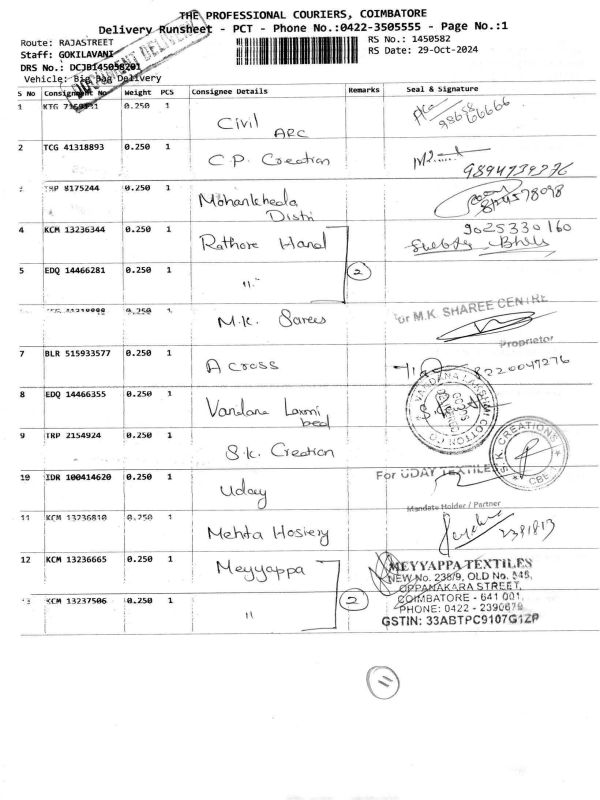 THE PROFESSIONAL COURIERS, COIMBATORE
Delivery Runsheet - PCT - Phone No.:0422-3505555 - Page No.:1
Route: RAJASTREET
RS No.: 1450582
Staff: GOKILAVANI
RS Date: 29-Oct-2024
DRS No.: DCJB145058201
Vehicle: Big Bag Delivery
S No Consignment No Weight PCS Consignee Details Remarks Seal & Signature
1 KTG 0.250 1
Civil
ARC
2 TCG 41318893 0.250 1 C.P. Creation
9894739376
TRP 8175244 0.250 1 Mohankheda
Distri
4 KCM 13236344 0.250 1 Rathore Hand
9025330160
5 EDQ 14466281 0.250 1 11 2
0.250 1 M.K. Sarees
for M.K. SHAREE CENTRE
Proprietor
7 BLR 515933577 0.250 1 Across
8220047276
8 EDQ 14466355 0.250 1 Vandana Laxmi
VANDANA LAKSHMI COTTON CO
9 TRP 2154924 0.250 1 S.K. Creation
S.K. CREATIONS
CBE
10 IDR 100414620 0.250 1 Uday
For UDAY TEXTILES
Mandate Holder / Partner
11 KCM 13236810 0.250 1 Mehta Hosiery
2391813
12 KCM 13236665 0.250 1 Meyyappa
MEYYAPPA TEXTILES
NEW No. 238/9, OLD No. 545,
OPPANAKARA STREET,
13 KCM 13237506 0.250 1 11 2
COIMBATORE - 641 001.
PHONE: 0422 - 2390678
GSTIN: 33ABTPC9107G1ZP
11